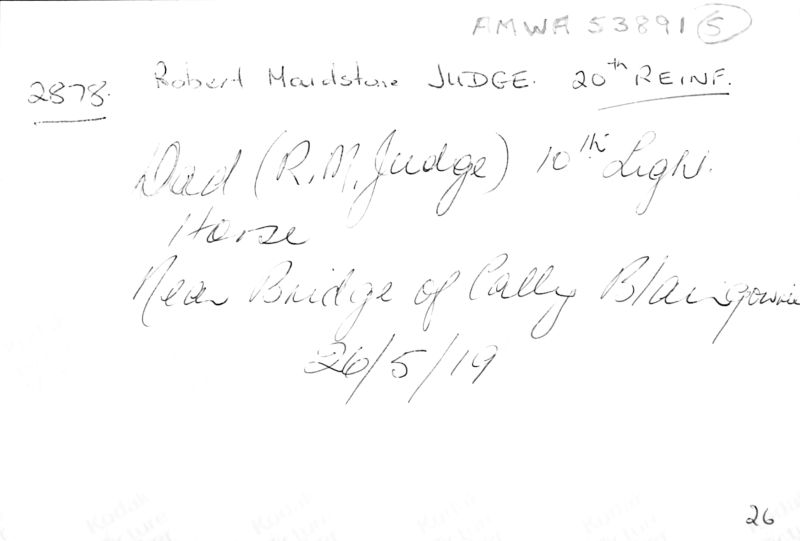 AMWA 53891 5
2878. Robert Maidstone JUDGE. 20th REINF.
Dad (R.M. Judge) 10th Light
Horse
Near Bridge of Cally Blairgowrie
26/5/19
26
Kodak Kodak Kodak Kodak